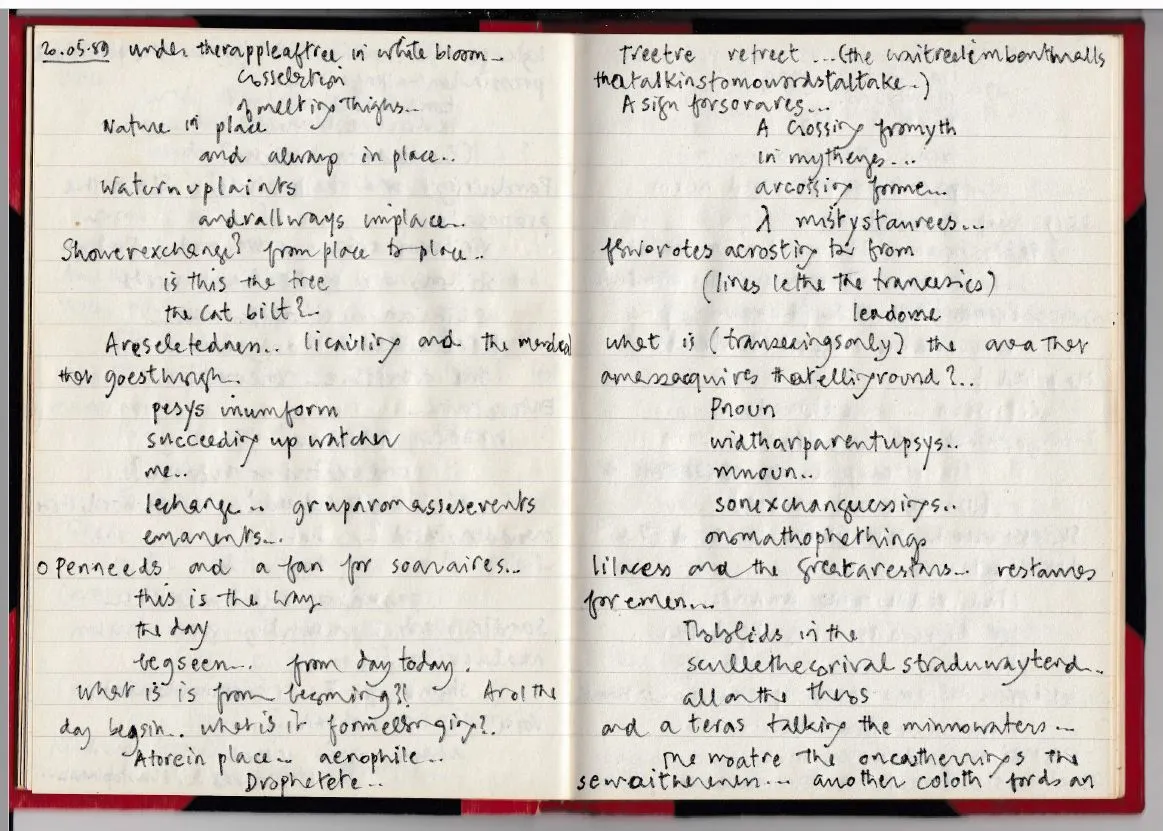 20.05.89 under therappleaftree in white bloom..
cosselation
of melting thighs...
Nature in place
and always in place..
Waternuplaints
andrallways implace..
Showerexchange? from place to place..
is this the tree
the cat bilt?..
Areseletednen.. licaility and the
that goesthrough..
pesys inumform
succeeding up watcher
me..
lechange .. gruparomassesevents
emanents...
Openneeds and a fan for soaraires...
this is the way
the day
begseen... from day today.
what is is from becoming?! And the
day begsin.. what is it
Atorein place... aerophile..
Drophetete..
Treetre retrect ...(the
thatalkinstomowordstaltake..)
A sign forsorares...
A crossing fromyth
in mytheyes...
arcossing forme...
λ mistystaurees...
acrosting from
(lines lethe the trancesics)
leadome
what is (transeeingsonly) the area that
amassacquires thatelliground?..
Pnoun
widtharparentupsys..
mnoun..
sonexchanguessings..
onomathophethings
lilacess and the Greatarestans... restaures
foremen...
in the
scullethecorival straduwayterd..
all on the thess
and a teras talking the minnowaters...
The moatre the oncathernings the
another coloth fords an